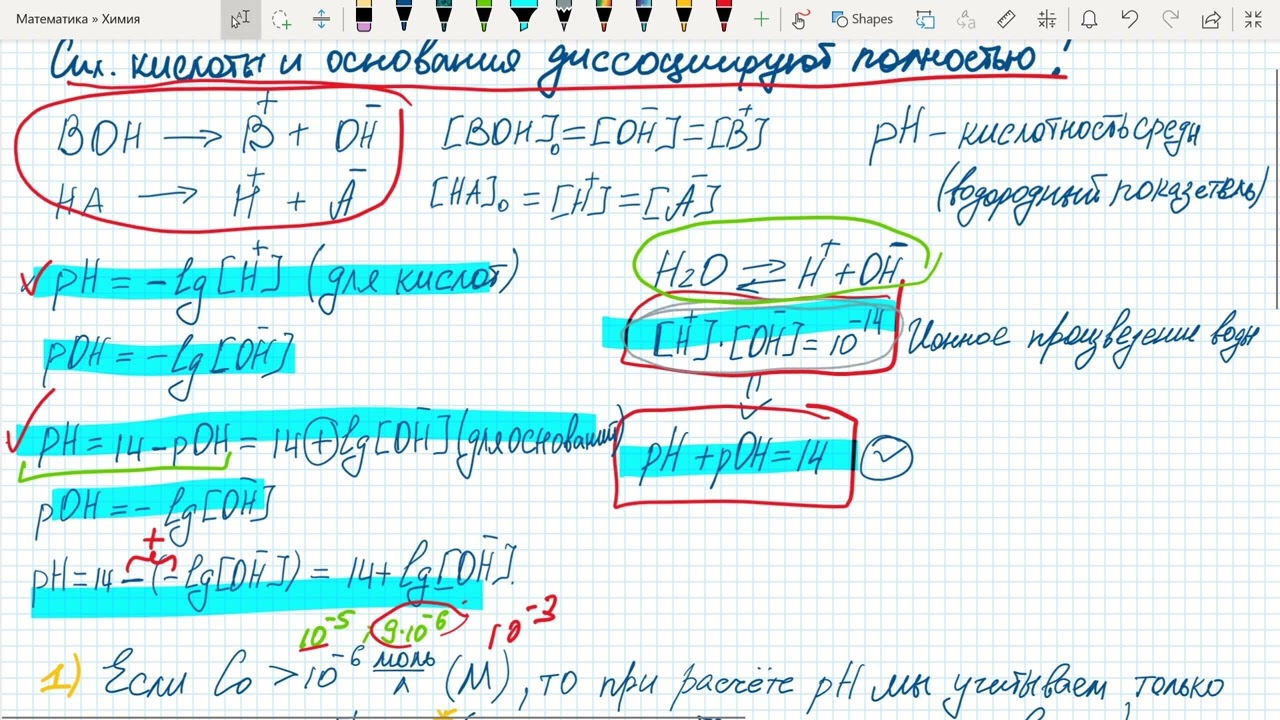 Математика » Химия
Shapes
Сил. кислоты и основания диссоциируют полностью!
BOH → B⁺ + OH⁻ [BOH]₀ = [OH⁻] = [B⁺] pH – кислотность среды
HA → H⁺ + A⁻ [HA]₀ = [H⁺] = [A⁻] (водородный показатель)
pH = -lg[H⁺] (для кислот) H₂O ⇄ H⁺ + OH⁻
pOH = -lg[OH⁻] [H⁺]·[OH⁻] = 10⁻¹⁴ Ионное произведение воды
pH = 14 - pOH = 14 + lg[OH⁻] (для оснований) pH + pOH = 14
pOH = - lg[OH⁻]
+
pH = 14 - (-lg[OH⁻]) = 14 + lg[OH⁻].
10⁻⁵; 9·10⁻⁶ 10⁻³
1) Если C₀ > 10⁻⁶ моль/л (М), то при расчёте pH мы учитываем только